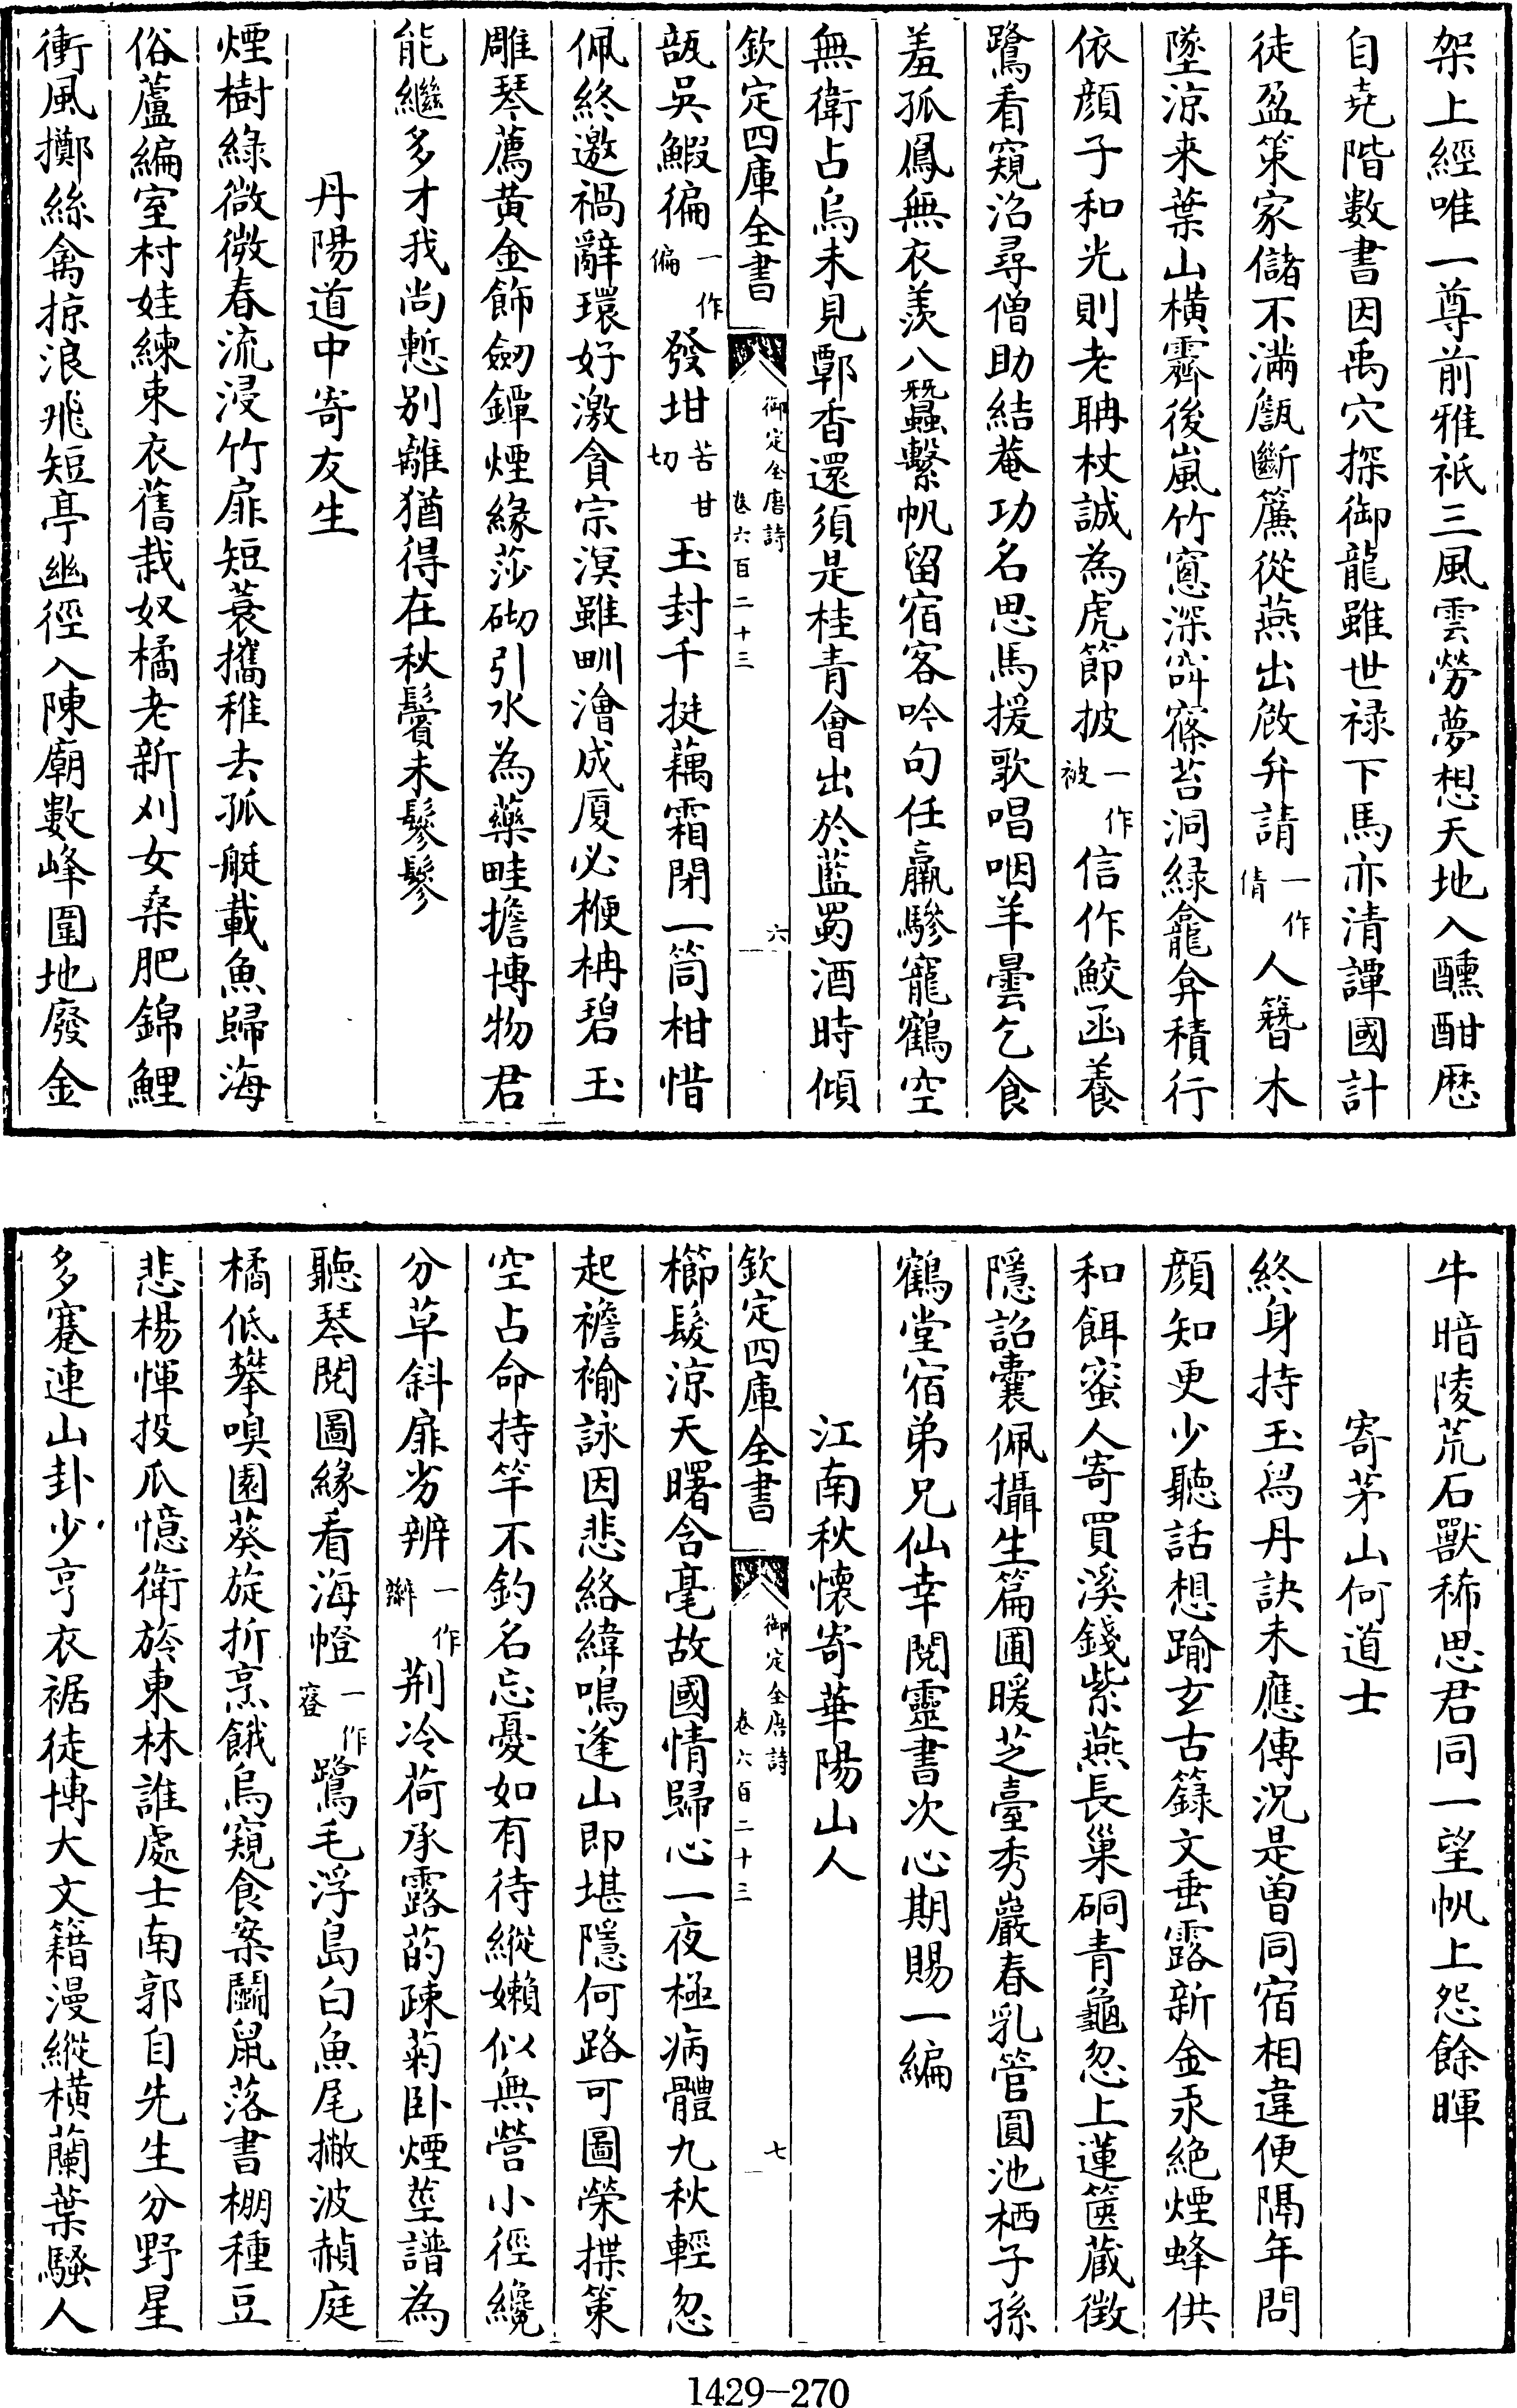 架上經唯一尊前雅袛三風雲勞夢想天地入醺酣歴
自尭階數書因禹穴探御龍雖世禄下馬亦清譚國計
徒盈策家儲不滿甔斷簾從燕出敧弁請一作倩人簪木
墜涼来葉山橫霽後嵐竹窻深窅篠苔洞緑龕弇積行
依顔子和光則老聃杖誠為虎節披一作被信作鮫函養
鷺看窺沼尋僧助結菴功名思馬援歌唱咽羊曇乞食
羞孤鳳無衣羨八蠶繫帆留宿客吟句任羸驂寵鶴空
無衛占烏未見鄿香還須是桂青會出於藍蜀酒時傾
欽定四庫全書 御定全唐詩 卷六百二十三 六
瓿吳鰕徧一作偏發坩苦甘切玉封千挺藕霜閉一筒柑惜
佩終邀禍辭環好激貪宗溟雖甽澮成厦必楩柟碧玉
雕琴薦黄金飾劒鐔煙緣莎砌引水為藥畦擔博物君
能繼多才我尚慙别離猶得在秋鬢未鬖鬖
丹陽道中寄友生
煙樹綠微微春流浸竹扉短蓑攜稚去孤艇載魚歸海
俗蘆編室村娃練束衣舊栽奴橘老新刈女桑肥錦鯉
衝風擲絲禽掠浪飛短亭幽徑入陳廟數峰圍地廢金
牛暗陵荒石獸稀思君同一望帆上怨餘暉
寄茅山何道士
終身持玉舄丹訣未應傳況是曾同宿相違便隔年問
顔知更少聽話想踰玄古籙文垂露新金汞絶煙蜂供
和餌蜜人寄買溪錢紫燕長巢硐青龜忽上蓮篋藏徵
隱詔囊佩攝生篇圃暖芝臺秀巖春乳管圓池栖子孫
鶴堂宿弟兄仙幸閱靈書次心期賜一編
江南秋懷寄華陽山人
欽定四庫全書 御定全唐詩 卷六百二十三 七
櫛髪涼天曙含毫故國情歸心一夜極病體九秋輕忽
起襜褕詠因悲絡緯鳴逢山即堪隱何路可圖榮揲策
空占命持竿不釣名忘憂如有待縱嬾似無營小徑纔
分草斜扉劣辨一作辦荆冷荷承露菂疎菊卧煙莖譜為
聽琴閱圖緣看海㡧一作𥧌鷺毛浮島白魚尾撇波赬庭
橘低攀嗅園葵旋折烹餓烏窺食案鬭鼠落書棚種豆
悲楊惲投瓜憶衛旍東林誰處士南郭自先生分野星
多蹇連山卦少亨衣裾徒博大文籍漫縱橫蘭葉騷人
1429-270